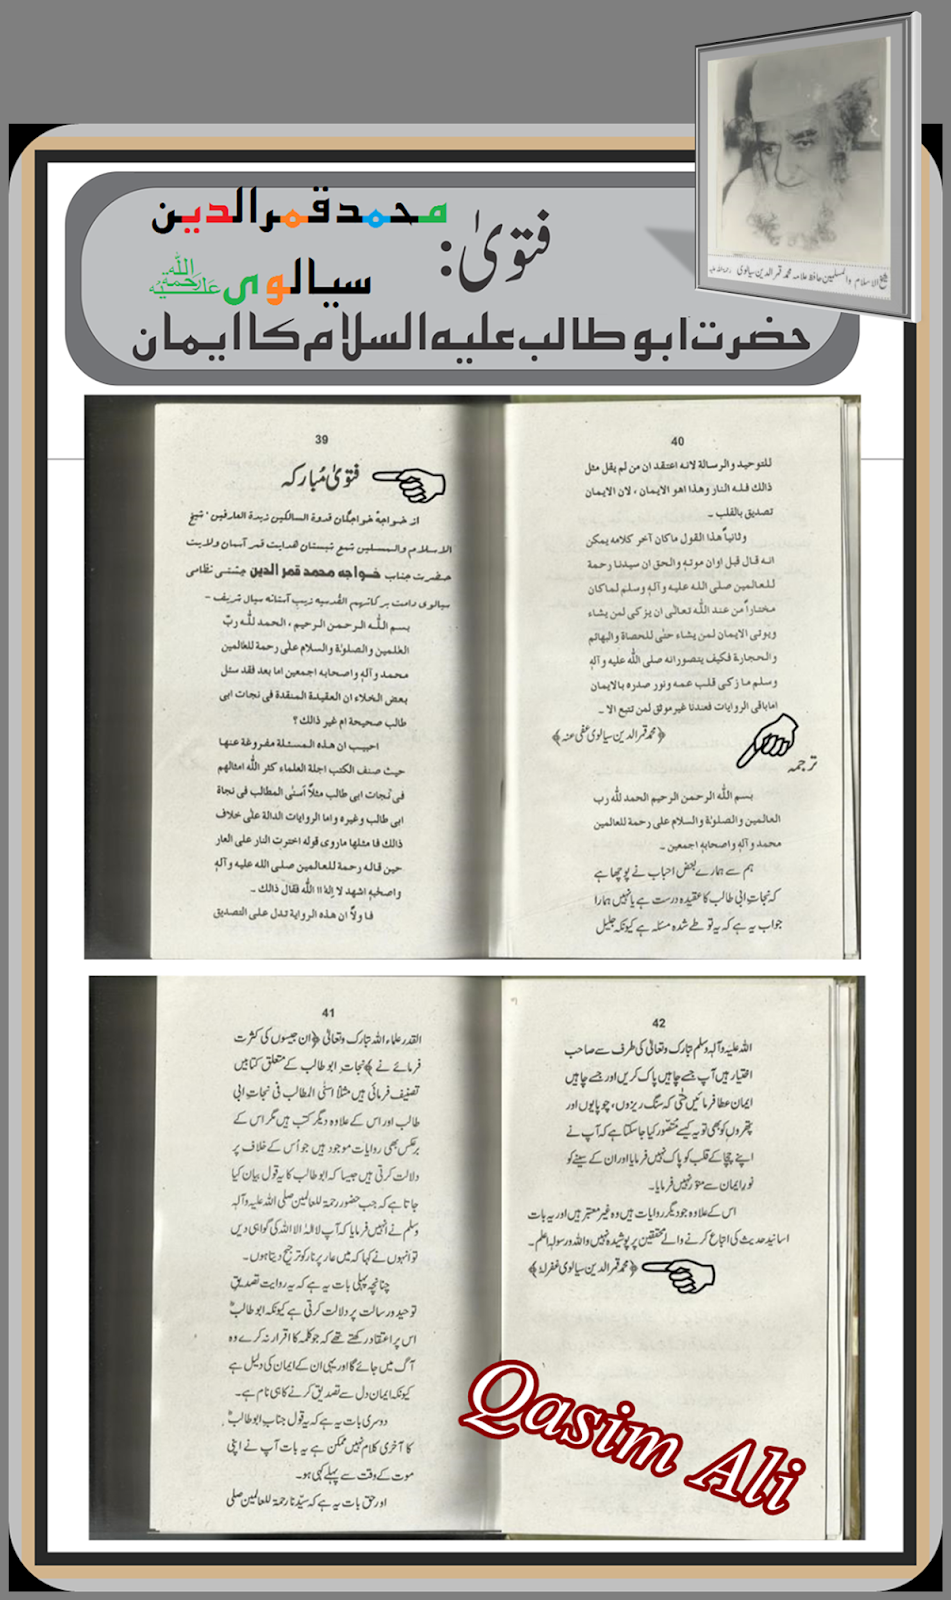 فتویٰ:
محمد قمر الدین
سیالوی رحمۃ اللہ علیہ
حضرت ابو طالب علیہ السلام کا ایمان
شیخ الاسلام والمسلمین حافظ علامہ محمد قمر الدین سیالوی رحمۃ اللہ علیہ
39
فتویٰ مُبارکہ
از خواجۂ خواجگان قدوة السالکین زبدة العارفین، شیخ
الاسلام والمسلمین شمع شبستان ھدایت قمر آسمان ولایت
حضرت جناب خواجه محمد قمر الدین چشتی نظامی
سیالوی دامت برکاتہم القُدسیه زیب آستانه سیال شریف۔
بسم اللہ الرحمن الرحیم، الحمد للہ ربّ
العٰلمین والصلوٰة والسلام علٰی رحمة للعٰالمین
محمد وآلهٖ واصحابه اجمعین اما بعد فقد سئل
بعض الخلاء ان العقیدة المنقدة فی نجات ابی
طالب صحیحة ام غیر ذالك؟
احبیب ان هذه المسئلة مفروغة عنها
حیث صنف الکتب اجلة العلماء کثر اللہ امثالهم
فی نجات ابی طالب مثلاً أسنٰی المطالب فی نجاة
ابی طالب وغیره واما الروایات الدالة علٰی خلاف
ذالك فا مثلها ماروی قوله اخترت النار علی العار
حین قاله رحمة للعالمین صلی الله علیه وآلهٖ
واصحٰبهٖ اشهد لا إلهٰ الا اللّٰه فقال ذالك۔
فا ولاً ان هذه الروایة تدل علی التصدیق
40
للتوحید والرسالة لانه اعتقد ان من لم یقل مثل
ذالك فله النار وهذا اهو الایمان، لان الایمان
تصدیق بالقلب۔
وثانیاً هذا القول ماکان آخر کلامه یمکن
انه قال قبل اوان موتهٖ والحق ان سیدنا رحمة
للعالمین صلی الله علیه وآلهٖ وسلم لماکان
مختاراً من عند اللّٰه تعالٰی ان یزکی لمن یشاء
ویوتی الایمان لمن یشاء حتٰی للحصاة والبهائم
والحجارة فکیف یتصورانه صلی اللّٰه علیه وآلهٖ
وسلم ما زکی قلب عمه ونور صدره بالایمان
اماباقی الروایات فعندنا غیر موثق لمن تتبع الا۔
﴿محمد قمر الدین سیالوی عُفی عنہ﴾
ترجمہ
بسم اللّٰه الرحمن الرحیم الحمد للّٰه رب
العالمین والصلوٰة والسلام علی رحمة للعالمین
محمد وآلهٖ واصحابهٖ اجمعین۔
ہم سے ہمارے بعض احباب نے پوچھا ہے
کہ نجاتِ ابی طالب کا عقیدہ درست ہے یا نہیں ہمارا
جواب یہ ہے کہ یہ تو طے شدہ مسئلہ ہے کیونکہ جلیل
41
القدر علماء اللہ تبارک وتعالٰی ﴿ان جیسوں کی کثرت
فرمائے نے﴾ نجات ابو طالب کے متعلق کتابیں
تصنیف فرمائی ہیں مثلاً اسنٰی المطالب فی نجاتِ ابی
طالب اور اس کے علاوہ دیگر کتب ہیں مگر اس کے
برعکس بھی روایات موجود ہیں جو اُس کے خلاف پر
دلالت کرتی ہیں جیسا کہ ابو طالب کا یہ قول بیان کیا
جاتا ہے کہ جب حضور رحمۃ للعالمین صلی اللہ علیہ وآلہٖ
وسلم نے انہیں فرمایا کہ آپ لا الٰہ الا اللہ کی گواہی دیں
تو انہوں نے کہا کہ میں عار پر نار کو ترجیح دیتا ہوں۔
چنانچہ پہلی بات یہ ہے کہ یہ روایت تصدیقِ
توحید ورسالت پر دلالت کرتی ہے کیونکہ ابو طالبؓ
اس پر اعتقاد رکھتے تھے کہ جو کلمہ کا اقرار نہ کرے وہ
آگ میں جائے گا اور یہی ان کے ایمان کی دلیل ہے
کیونکہ ایمان دل سے تصدیق کرنے کا ہی نام ہے۔
دوسری بات یہ ہے کہ یہ قول جنابِ ابو طالبؓ
کا آخری کلام نہیں ممکن ہے یہ بات آپ نے اپنی
موت کے وقت سے پہلے کہی ہو۔
اور حق بات یہ ہے کہ سیّدنا رحمۃ للعالمین صلی
42
اللہ علیہ وآلہٖ وسلم تبارک وتعالٰی کی طرف سے صاحب
اختیار ہیں آپ جسے چاہیں پاک کریں اور جسے چاہیں
ایمان عطا فرمائیں حتٰی کہ سنگ ریزوں، چوپایوں اور
پتھروں کو بھی تو یہ کیسے متصّور کیا جا سکتا ہے کہ آپ نے
اپنے چچا کے قلب کو پاک نہیں فرمایا اور ان کے سینے کو
نورِ ایمان سے منوّر نہیں فرمایا۔
اس کے علاوہ جو دیگر روایات ہیں وہ غیر معتبر ہیں اور یہ بات
اسانیدِ حدیث کی اتباع کرنے والے محققین پر پوشیدہ نہیں واللہ ورسولہٗ اعلم۔
﴿محمد قمر الدین سیالوی غفرلہٗ﴾
Qasim Ali